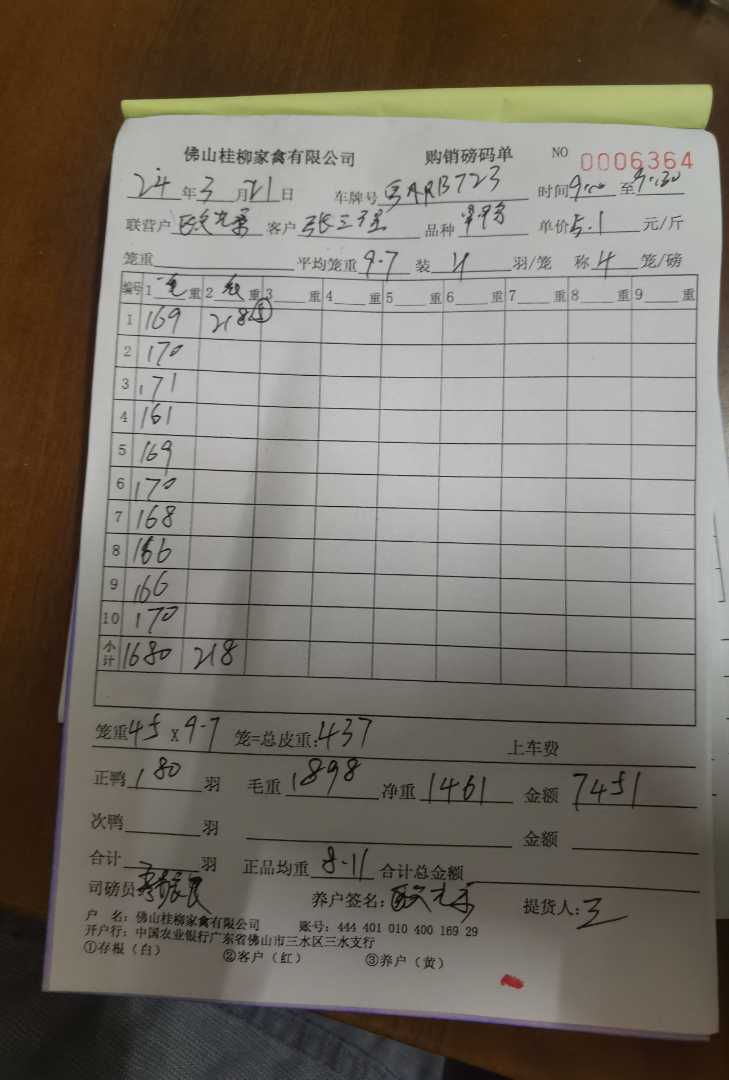 佛山桂柳家禽有限公司 购销磅码单 NO 0006364
24年3月21日 车牌号 ARB723 时间9:00至9:30
联营户 客户 张三 品种 单价5.1元/斤
笼重 平均笼重9.7 装4羽/笼 称4笼/磅
编号 1 毛重 2 重 3 重 4 重 5 重 6 重 7 重 8 重 9 重
1 169 218 ⑤
2 170
3 171
4 161
5 169
6 170
7 168
8 166
9 166
10 170
小计 1680 218
笼重45x9.7笼=总皮重:437 上车费
正鸭180羽 毛重1898 净重1461 金额7451
次鸭 羽 金额
合计 羽 正品均重8.11 合计总金额
司磅员 养户签名: 提货人:王
户 名:佛山桂柳家禽有限公司 账号:444 401 010 400 169 29
开户行:中国农业银行广东省佛山市三水区三水支行
①存根(白) ②客户(红) ③养户(黄)